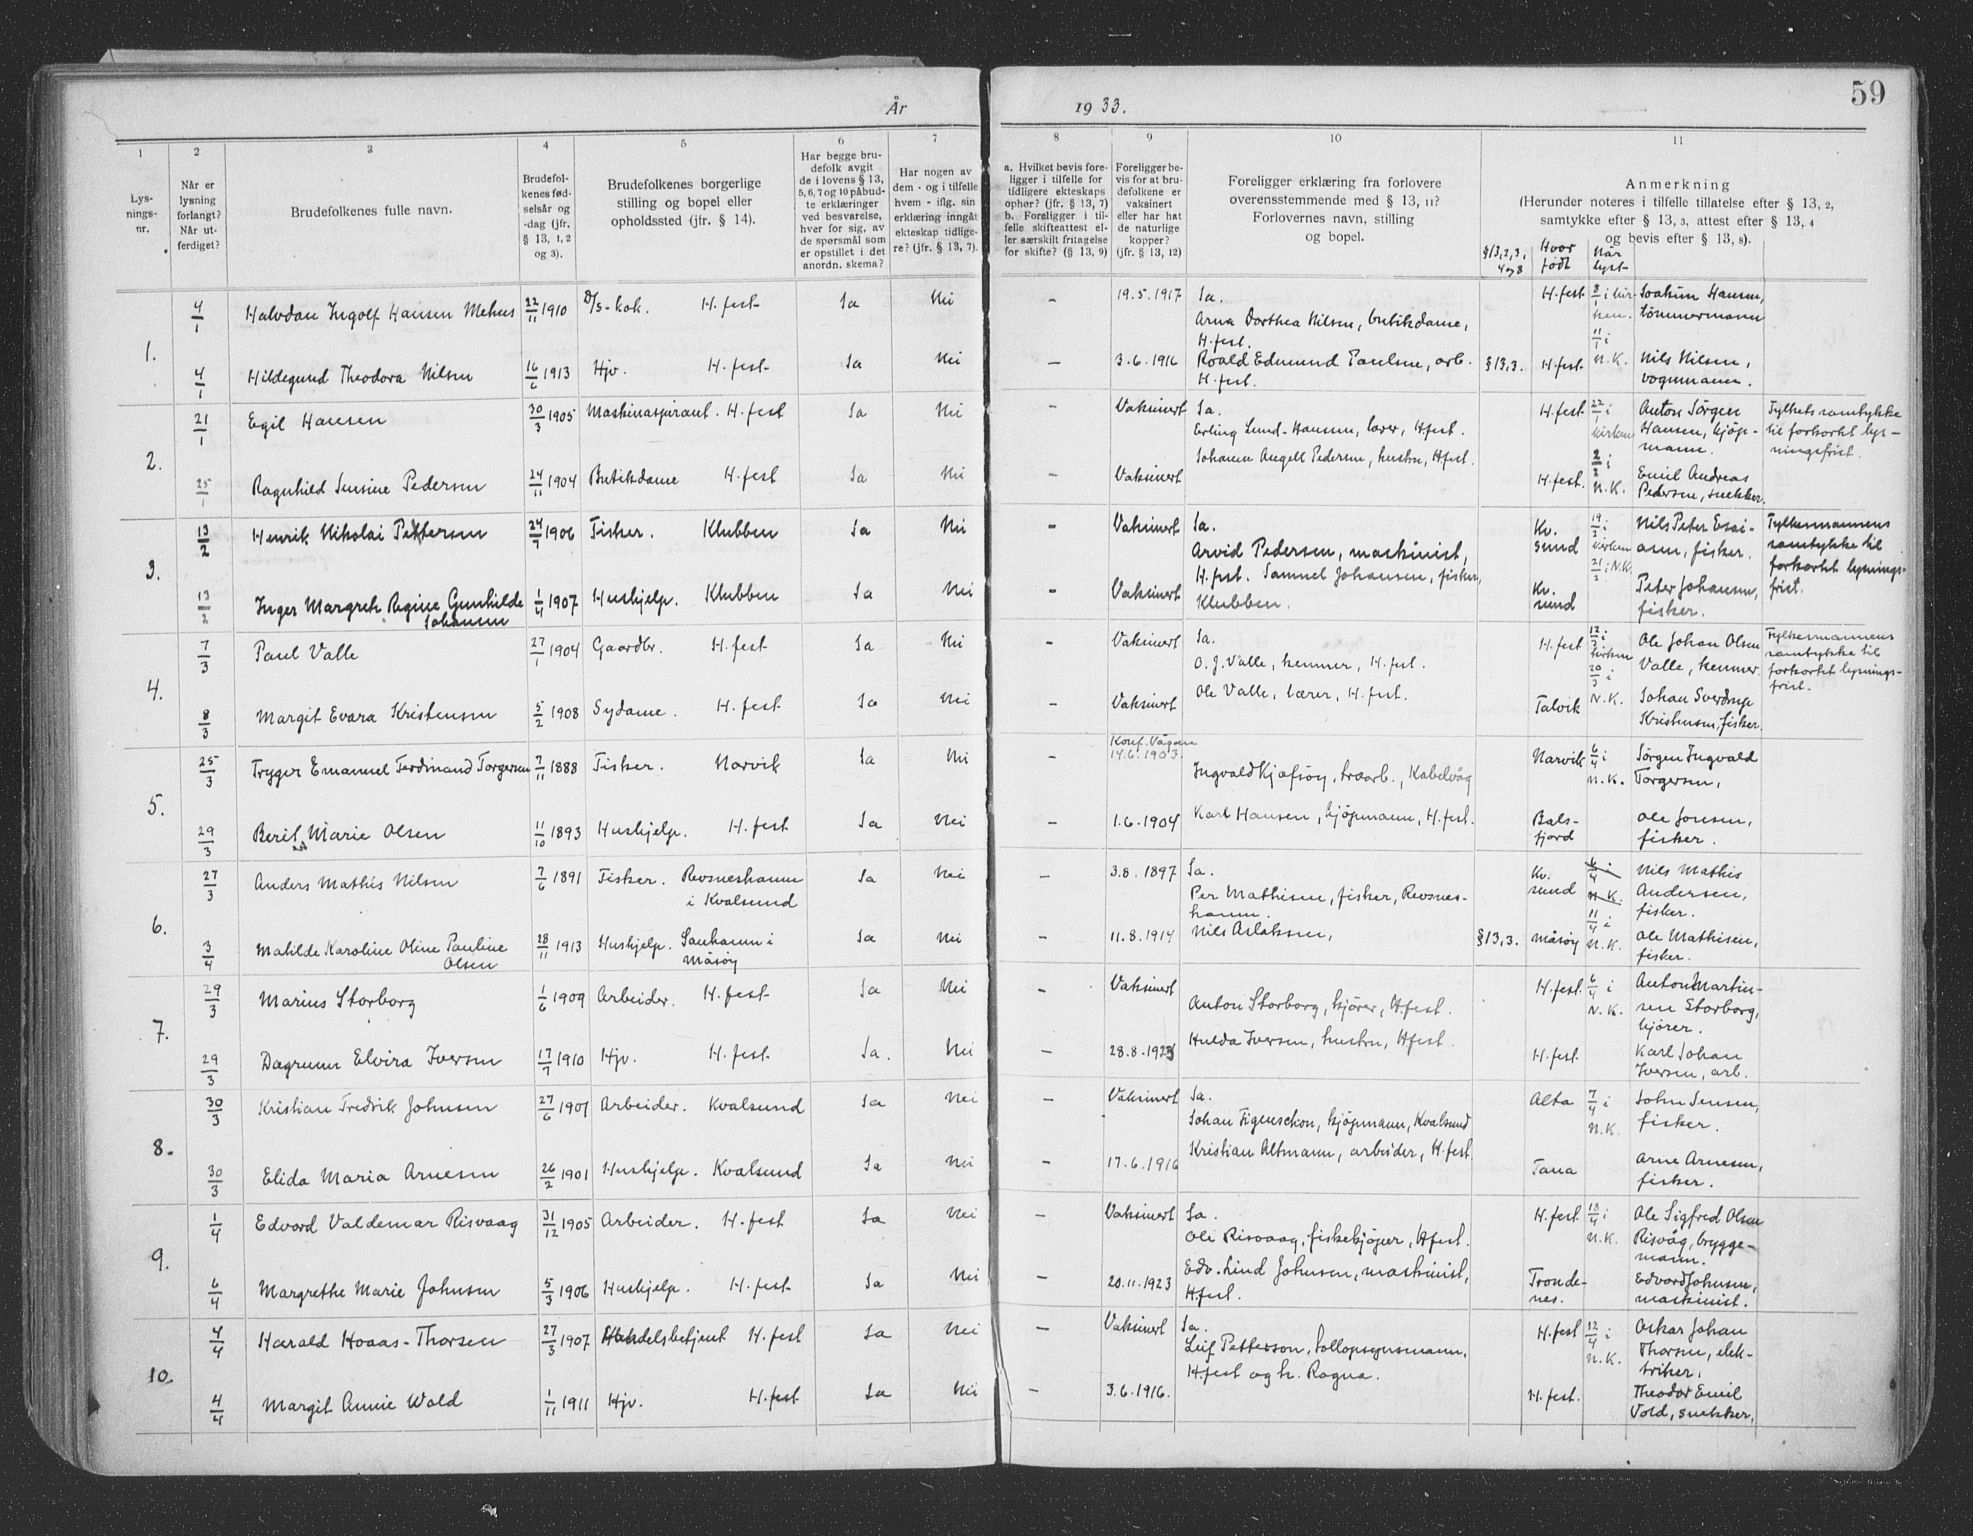 År 1933.
59
1 2 3 4 5 6 7 8 9 10 11
Lys-
nings-
nr.
Når er
lysning
forlangt?
Når ut-
ferdiget?
Brudefolkenes fulle navn.
Brudefol-
kenes fød-
selsår og
-dag (jfr.
§ 13, 1, 2
og 3).
Brudefolkenes borgerlige
stilling og bopel eller
opholdssted (jfr. § 14).
Har begge bru-
defolk avgit
de i lovens § 13,
5, 6, 7 og 10 påbud-
te erklæringer
ved besvarelse,
hver for sig, av
de spørsmål som
er opstillet i det
anordn. skema?
Har nogen av
dem - og i tilfelle
hvem - iflg. sin
erklæring inngått
ekteskap tidlige-
re? (jfr. § 13, 7).
a. Hvilket bevis fore-
ligger i tilfelle for
tidligere ekteskaps
ophør? (jfr. § 13, 7)
b. Foreligger i til-
felle skifteattest el-
ler særskilt fritagelse
for skifte? (§ 13, 9)
Foreligger be-
vis for at bru-
defolkene er
vaksinert
eller har hat
de naturlige
kopper?
(jfr. § 13, 12)
Foreligger erklæring fra forlovere
overensstemmende med § 13, 11?
Forlovernes navn, stilling
og bopel.
Anmerkning
(Herunder noteres i tilfelle tillatelse efter § 13, 2,
samtykke efter § 13, 3, attest efter § 13, 4
og bevis efter § 13, 8).
§13,2,3,
4 og 8
Hvor
født
Når
lyst
1.
4/1 Halvdan Ingolf Hansen Mehus 22/11 1910 D/s-kok. H.fest Ja Nei - 19.5.1917 Ja.
Arna Dorthea Nilsen, butikdame,
H.fest.
H.fest 8/1 i kir-
ken.
11/1 i
N.K.
Joakim Hansen,
tömmermann
4/1 Hildegund Theodora Nilsen 16/6 1913 Hjv. H.fest Ja Nei - 3.6.1916 Roald Edmund Paulsen, arb.
H.fest.
§13,3. H.fest Nils Nilsen,
vognmann.
2.
21/1 Egil Hansen 30/3 1905 Maskinaspirant. H.fest Ja Nei - Vaksinert Ja.
Erling Lund-Hanssen, lærer, H.fest.
H.fest 22/1 i
kirken
2/2 i
N.K.
Anton Jörgen
Hansen, kjöp-
mann.
Fylkets samtykke
til forkortet lys-
ningsfrist.
25/1 Ragnhild Jensine Pedersen 24/11 1904 Butikdame H.fest Ja Nei - Vaksinert
Johanne Angell Pedersen, hustru, H.fest.
H.fest. Emil Andreas
Pedersen, snekker.
3.
13/2 Henrik Nikolai Pettersen 24/7 1906 Fisker. Klubben Ja Nei - Vaksinert Ja.
Arvid Pedersen, maskinist,
H.fest. Samuel Johansen, fisker,
Klubben.
Kv.
sund
19/2 i
kirken
21/2 i N.K.
Nils Peter Esai-
asen, fisker.
Fylkesmannens
samtykke til
forkortet lysnings-
frist.
13/2 Inger Margreth Regine Gunhilde
Johansen
1/4 1907 Hushjelp. Klubben Ja Nei - Vaksinert
Kv.
sund
Peter Johansen,
fisker.
4.
7/3 Paul Valle 27/1 1904 Gaardbr. H.fest Ja Nei - Vaksinert Ja.
O. J. Valle, kemner, H.fest.
H.fest 12/3 i
kirken
20/3 i
N.K.
Ole Johan Olsen
Valle, kemner
Fylkesmannens
samtykke til
forkortet lysnings-
frist.
8/3 Margit Evara Kristensen 5/2 1908 Sydame. H.fest Ja Nei - Vaksinert
Ole Valle, lærer, H.fest.
Talvik Johan Sverdrup
Kristensen, fisker.
5.
25/3 Trygve Emanuel Ferdinand Torgersen 7/11 1888 Fisker. Narvik Ja Nei - Konf. Vågan
14.6.1903.
Ingvald Kjefsöy, trearb., Kabelvåg
Narvik 6/4 i
N.K.
Jörgen Ingvald
Torgersen,
29/3 Berit Marie Olsen 11/10 1893 Hushjelp. H.fest Ja Nei - 1.6.1904
Karl Hansen, kjöpmann, H.fest.
Bals-
fjord
Ole Joresen,
fisker.
6.
27/3 Anders Mathis Nilsen 7/6 1891 Fisker. Revsneshamn
i Kvalsund
Ja Nei - 3.8.1897 Ja.
Per Mathisen, fisker, Revsnes-
hamn.
Kv.
sund
6/4 i
N.K.
11/4 i
N.K.
Nils Mathis
Andersen,
fisker.
3/4 Mathilde Karoline Oline Pauline
Olsen
28/11 1913 Hushjelp. Sanhamn i
Måsöy
Ja Nei - 11.8.1914 Nils Aslaksen,
§13,3. Måsöy Ole Mathisen,
fisker.
7.
29/3 Marius Storborg 1/6 1909 Arbeider. H.fest Ja Nei - Vaksinert
Anton Storborg, kjörer, H.fest.
H.fest. 6/4 i
N.K.
Anton Martin-
sen Storborg,
kjörer.
29/3 Dagrunn Elvira Iversen 17/7 1910 Hjv. H.fest Ja. Nei - 28.8.1923
Hulda Iversen, hustru, H.fest.
H.fest. Karl Johan
Iversen, arb.
8.
30/3 Kristian Fredrik Johnsen 27/6 1901 Arbeider. Kvalsund Ja Nei - Vaksinert Ja.
Johan Figenschou, kjöpmann, Kvalsund
Alta 7/4 i
N.K.
John Jensen,
fisker.
30/3 Elida Maria Arnesen 26/2 1901 Hushjelp. Kvalsund Ja Nei - 17.6.1916
Kristian Altmann, arbeider, H.fest.
Tana Arne Arnesen,
fisker.
9.
1/4 Edvard Valdemar Risvaag 31/12 1905 Arbeider. H.fest Ja Nei - Vaksinert Ja.
Ole Risvaag, fiskekjöper, H.fest.
H.fest 18/4 i
N.K.
Ole Sigfred Olsen
Risvåg, brygge-
mann.
6/4 Margrethe Marie Johnsen 5/3 1906 Hushjelp. H.fest. Ja Nei - 20.11.1923
Edv. Lind Johnsen, maskinist,
H.fest.
Tronde-
nes.
Edvard Johnsen,
maskinist.
10.
4/4 Harald Hoaas-Thorsen 27/3 1907 Handelsbetjent H.fest Ja Nei - Vaksinert Ja.
Leif Petterson, tollopsynsmann,
H.fest og h. Ragna.
H.fest 12/4 i
N.K.
Oskar Johan
Thorsen, elek-
triker.
4/4 Margit Annie Wold 1/11 1911 Hjv. H.fest Ja Nei - 3.6.1916.
H.fest. Theodor Emil
Vold, snekker.